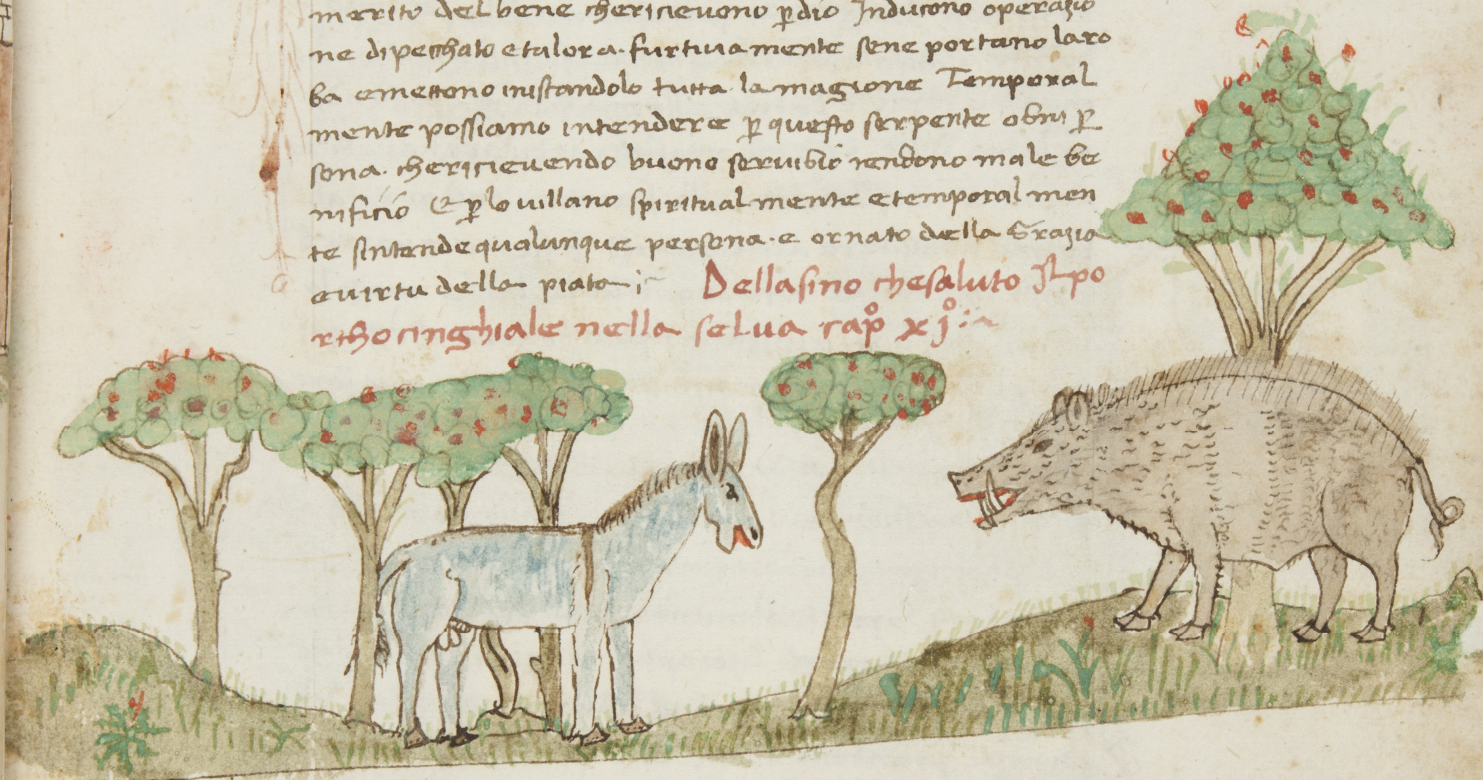 merito del bene chericieuono p̲dio Inducono operazio
ne dipecchato etalora. furtiuamente sene portano laro
ba emettono inistandolo tutta la magione Temporal
mente possiamo intendere p̲ questo serpente obni p̲
sona. chericieuendo buono seruibio rendono male be
nificio Et p̲ lo uillano spiritual mente etemporal men
te sintende qualunque persona. e ornato della Grazia
euirtu della piata
Dellasino chesaluto Jlpo
rcho cinghiale nella selua cap̊ xj̊